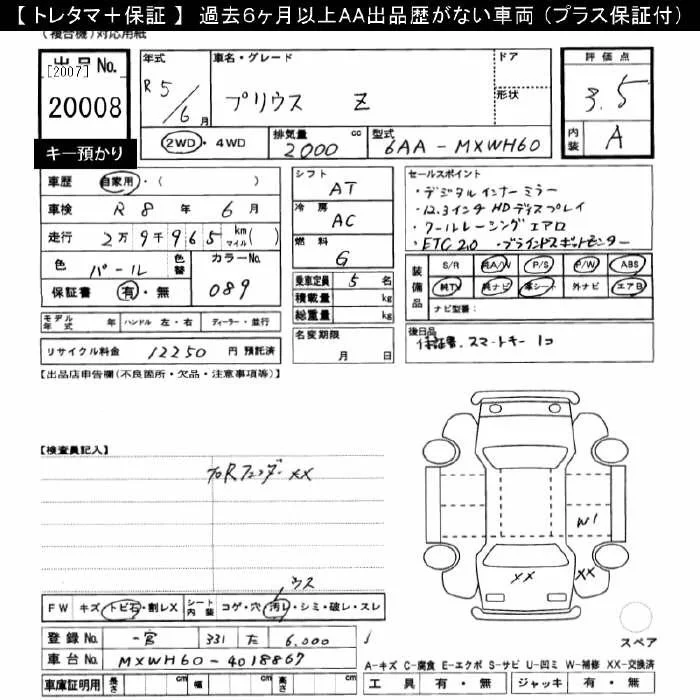 【 トレタマ＋保証 】 過去6ヶ月以上AA出品歴がない車両 (プラス保証付)
(複合機)対応用紙
出品No. [2007] 20008
キー預かり
年式 R5/6月
車名・グレード プリウス Z
ドア
形状
評価点 3.5
内装 A
2WD・4WD
排気量 2000 cc
型式 6AA-MXWH60
車歴 自家用・( )
車検 R8年 6月
走行 2万9千965 km マイル( )
色 パール 色替
カラーNo. 089
保証書 有・無
シフト AT
冷房 AC
燃料 G
乗車定員 5名
積載量 kg
総重量 kg
セールスポイント
・デジタルインナーミラー
・12.3インチHDディスプレイ
・クールレーシングエアロ
・ETC2.0 ・ブラインドスポットモニター
装備品 S/R 純A/W P/S P/W ABS
純TV 純ナビ 革シート 外ナビ エアB
ナビ型番:
モデル年式 年 ハンドル 左・右 ディーラー・並行
リサイクル料金 12250 円 預託済
名変期限 月 日
後日品
保証書、スマートキー1コ
【出品店申告欄(不良箇所・欠品・注意事項等)】
【検査員記入】
フロRフェンダーXX
W1
XX XX
ウス
FW キズ・トビ石・割レX シート内装 コゲ・穴・汚レ・シミ・破レ・スレ
登録No. 一宮 331 た 6,000
車台No. MXWH60-4018867
車庫証明用 長さ cm 幅 cm 高さ cm
スペア
A-キズ C-腐食 E-エクボ S-サビ U-凹ミ W-補修 XX-交換済
工具 有・無 ジャッキ 有・無